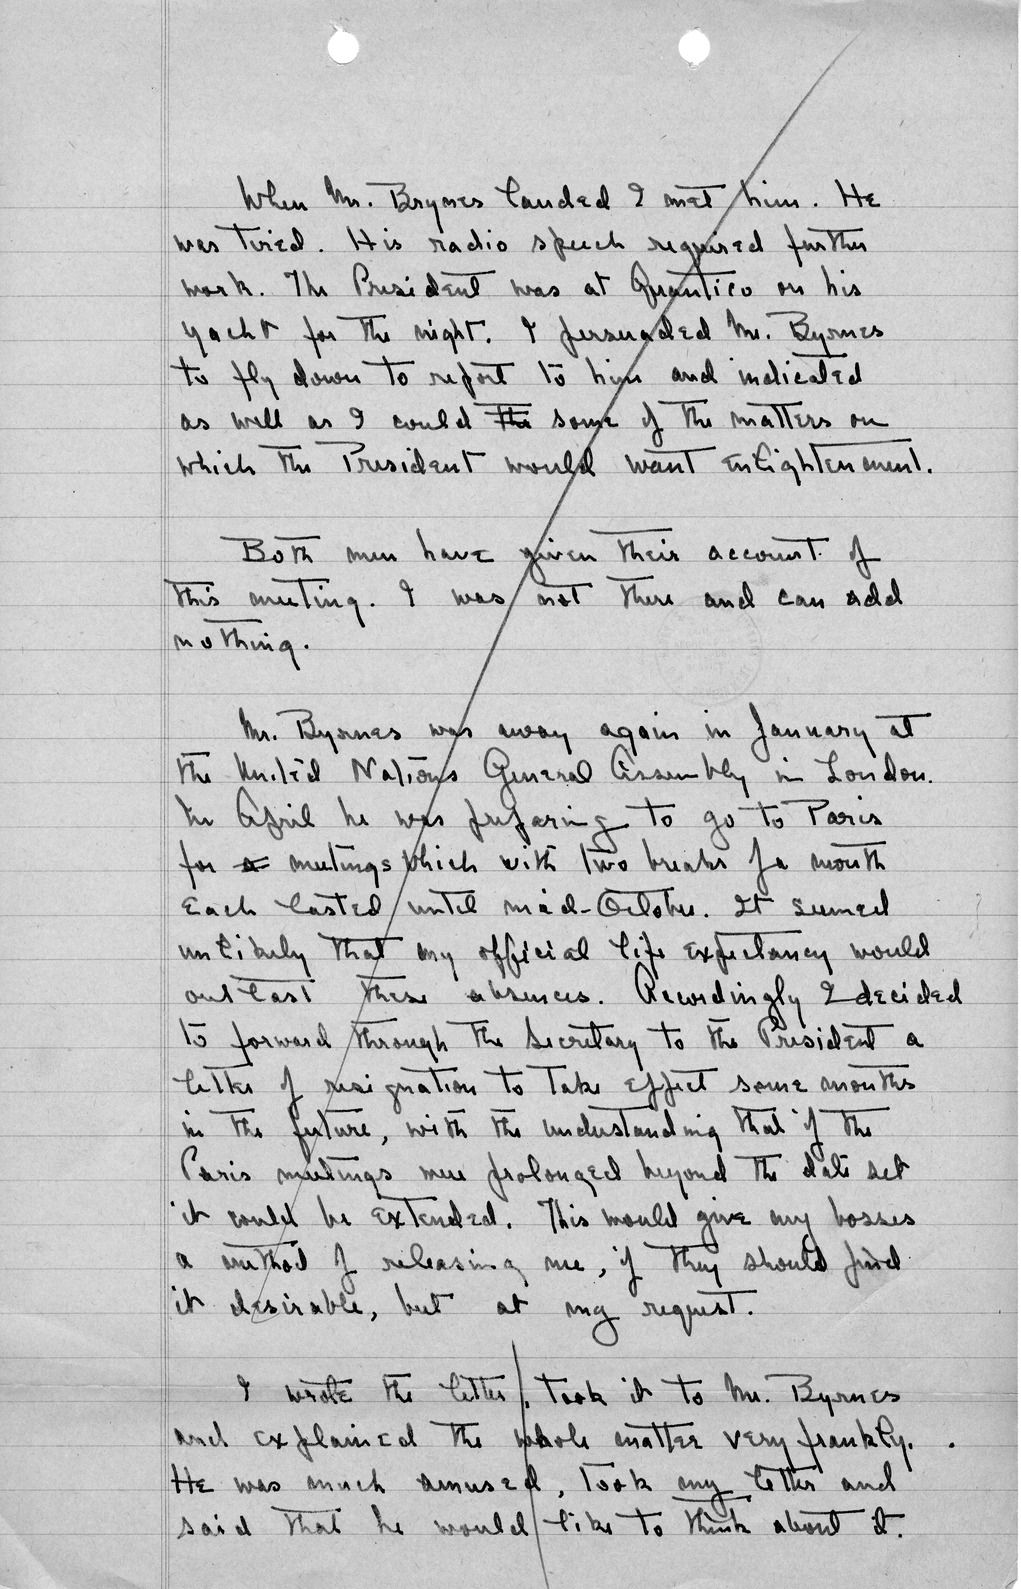 When Mr. Brynes landed I met him. He
was tired. His radio speech required further
work. The President was at Quantico on his
yacht for the night. I persuaded Mr. Byrnes
to fly down to report to him and indicated
as well as I could the some of the matters on
which the President would want enlightenment.
Both men have given their account of
this meeting. I was not there and can add
nothing.
Mr. Byrnes was away again in January at
the United Nations General Assembly in London.
In April he was preparing to go to Paris
for a meetings which with two breaks of a month
each lasted until mid-October. It seemed
unlikely that my official life expectancy would
outlast these absences. Accordingly I decided
to forward through the Secretary to the President a
letter of resignation to take effect some months
in the future, with the understanding that if the
Paris meetings were prolonged beyond the date set
it could be extended. This would give my bosses
a method of releasing me, if they should find
it desirable, but at my request.
I wrote the letter, took it to Mr. Byrnes
and explained the whole matter very frankly.
He was much amused, took my letter and
said that he would like to think about it.